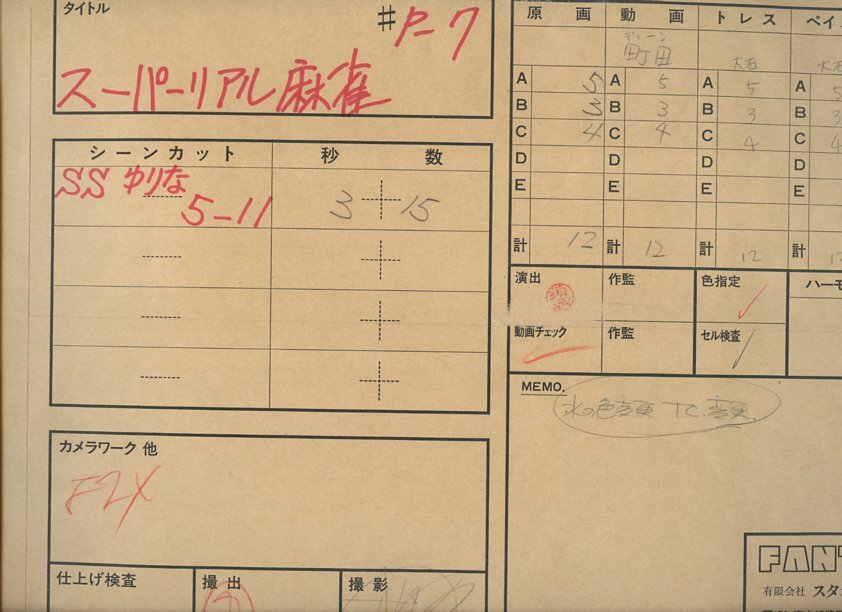 タイトル
#P-7
スーパーリアル麻雀
シーンカット 秒 数
SS ゆりな
5-11 3 + 15
カメラワーク 他
仕上げ検査 撮出 撮影
原 画 動 画 トレス ペイ
町田 大石 大石
A 5 A 5 A 5 A 5
B 3 B 3 B 3 B 3
C 4 C 4 C 4 C 4
D D D D
E E E E
計 12 計 12 計 12 計 12
演出 作監 色指定 ハーモ
動画チェック 作監 セル検査
MEMO.
水の色変更 T.C.変更.
FAN
有限会社 スタ